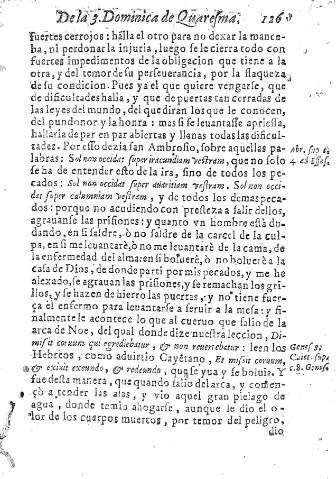 De la 3. Dominica de Quaresma. 126
fuertes cerrojos: hàlla el otro para no dexar la mance-
ba, ni perdonar la injuria, luego se le cierra todo con
fuertes impedimentos de la obligacion que tiene a la
otra, y del temor de su perseuerancia, por la flaqueza
de su condicion. Pues ya el que quiere vengarse, que
de dificultades halla, y que de puertas tan cerradas de
las leyes del mundo, del que diran los que le conocen,
del pundonor y la honra: mas si se leuantasse apriessa,
hallaria de par en par abiertas y llanas todas las dificul-
tades. Por esso dezia san Ambrosio, sobre aquellas pa-
labras: Sol non occidat super iracundiam vestram, que no solo
se ha de entender esto de la ira, sino de todos los pe-
cados: Sol non occidat super auaritiam vestram. Sol non occi-
dat super calumniam vestram, y de todos los demas peca-
dos: porque no acudiendo con presteza a salir dellos,
agrauanse las prisiones: y quanto vn hombre està du-
dando, en si saldrè, ò no saldrè de la carcel de la cul-
pa, en si me leuantarè, ò no me leuantarè de la cama, de
la enfermedad del alma: en si boluerè, ò no boluerè a la
casa de Dios, de donde parti por mis pecados, y me he
alexado, se agrauan las prisiones, y se remachan los gri-
llos, y se hazen de hierro las puertas, y no tiene fuer-
ça el enfermo para leuantarse a seruir a la mesa: y fi-
nalmente le acontece lo que al cueruo que salio de la
arca de Noe, del qual donde dize nuestra leccion, Di-
misit coruum qui egrediebatur, & non reuertebatur: leen los
Hebreos, como aduirtio Cayetano, Et misit coruum,
& exiuit exeundo, & redeundo, que se yua y se boluia. Y
fue desta manera, que quando salio del arca, y comen-
çò a tender las alas, y vio aquel gran pielago de
agua, donde temio ahogarse, aunque le dio el o-
lor de los cuerpos muertos, por temor del peligro,
dio
Abr. sup
4. ad Ephes.
Genes. 8.
Caiet. sup.
c. 8. Genes.